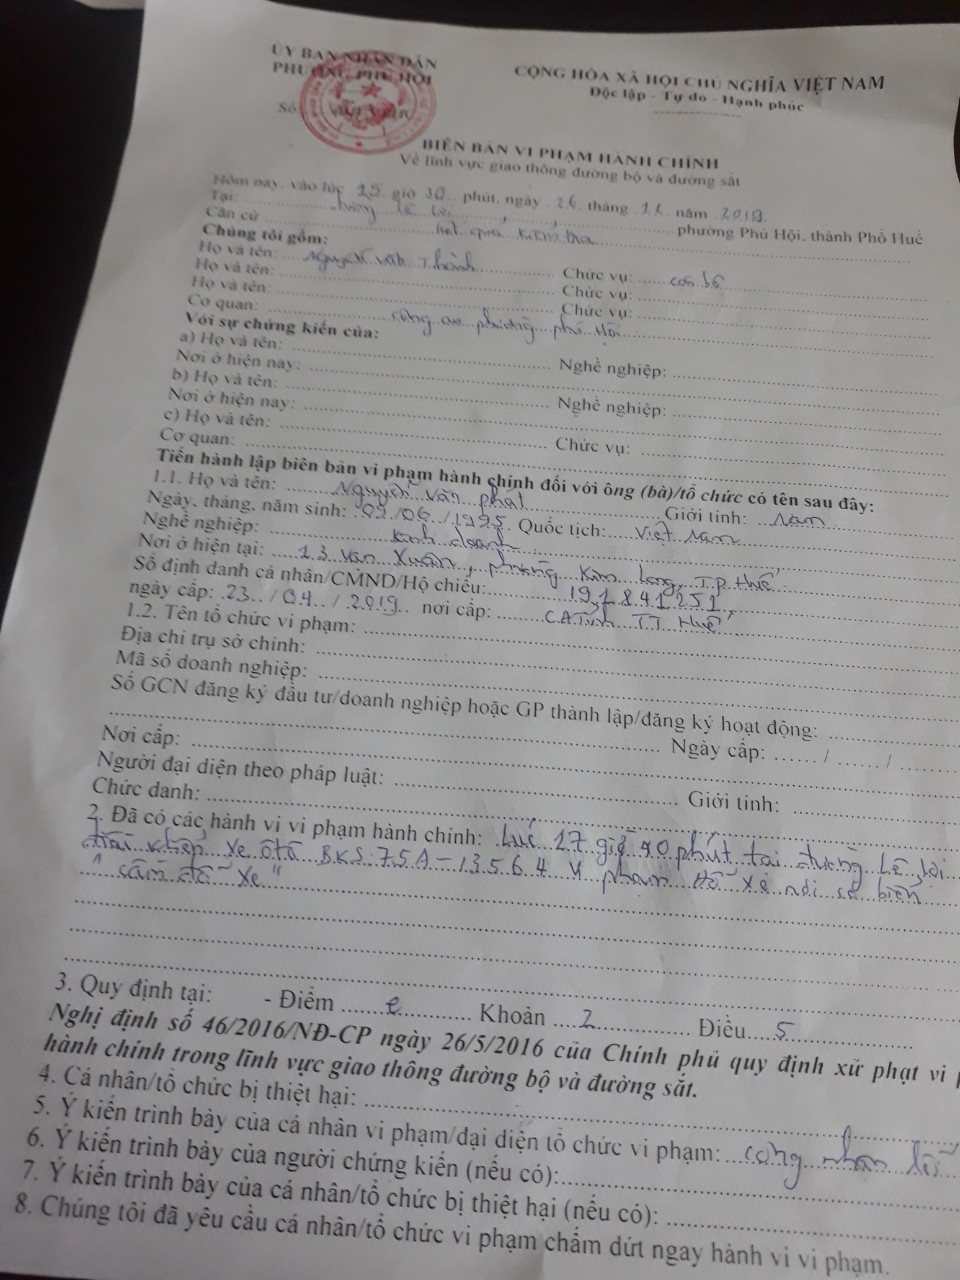 ỦY BAN NHÂN DÂN
PHƯỜNG PHÚ HỘI
CỘNG HÒA XÃ HỘI CHỦ NGHĨA VIỆT NAM
Độc lập - Tự do - Hạnh phúc
Số
BIÊN BẢN VI PHẠM HÀNH CHÍNH
Về lĩnh vực giao thông đường bộ và đường sắt
Hôm nay, vào lúc 15 giờ 30 phút, ngày 26 tháng 11 năm 2019
Tại: đường Lê Lợi, phường Phú Hội, thành Phố Huế
Căn cứ kết quả kiểm tra
Chúng tôi gồm:
Họ và tên: Nguyễn Văn Thành Chức vụ:
Họ và tên: Chức vụ:
Họ và tên: Chức vụ:
Cơ quan: công an phường phú Hội
Với sự chứng kiến của:
a) Họ và tên: Nghề nghiệp:
Nơi ở hiện nay:
b) Họ và tên: Nghề nghiệp:
Nơi ở hiện nay:
c) Họ và tên: Chức vụ:
Cơ quan:
Tiến hành lập biên bản vi phạm hành chính đối với ông (bà)/tổ chức có tên sau đây:
1.1. Họ và tên: Nguyễn Văn phát Giới tính: Nam
Ngày, tháng, năm sinh: 09/06/1995 Quốc tịch: Việt Nam
Nghề nghiệp: Kinh doanh
Nơi ở hiện tại: 13 Vạn Xuân, phường Kim Long, TP Huế
Số định danh cá nhân/CMND/Hộ chiếu: 191841251
ngày cấp: 23/04/2019 nơi cấp: CA Tỉnh TT Huế
1.2. Tên tổ chức vi phạm:
Địa chỉ trụ sở chính:
Mã số doanh nghiệp:
Số GCN đăng ký đầu tư/doanh nghiệp hoặc GP thành lập/đăng ký hoạt động:
Ngày cấp: / /
Nơi cấp:
Người đại diện theo pháp luật: Giới tính:
Chức danh:
2. Đã có các hành vi vi phạm hành chính: Lúc 17 giờ 40 phút tại đường Lê Lợi
điều khiển xe ôtô BKS: 75A-13564 vi phạm đỗ xe nơi có biển
" cấm đỗ xe"
3. Quy định tại: - Điểm e Khoản 2 Điều 5
Nghị định số 46/2016/NĐ-CP ngày 26/5/2016 của Chính phủ quy định xử phạt vi
hành chính trong lĩnh vực giao thông đường bộ và đường sắt.
4. Cá nhân/tổ chức bị thiệt hại:
5. Ý kiến trình bày của cá nhân vi phạm/đại diện tổ chức vi phạm: công nhận lỗi
6. Ý kiến trình bày của người chứng kiến (nếu có):
7. Ý kiến trình bày của cá nhân/tổ chức bị thiệt hại (nếu có):
8. Chúng tôi đã yêu cầu cá nhân/tổ chức vi phạm chấm dứt ngay hành vi vi phạm.